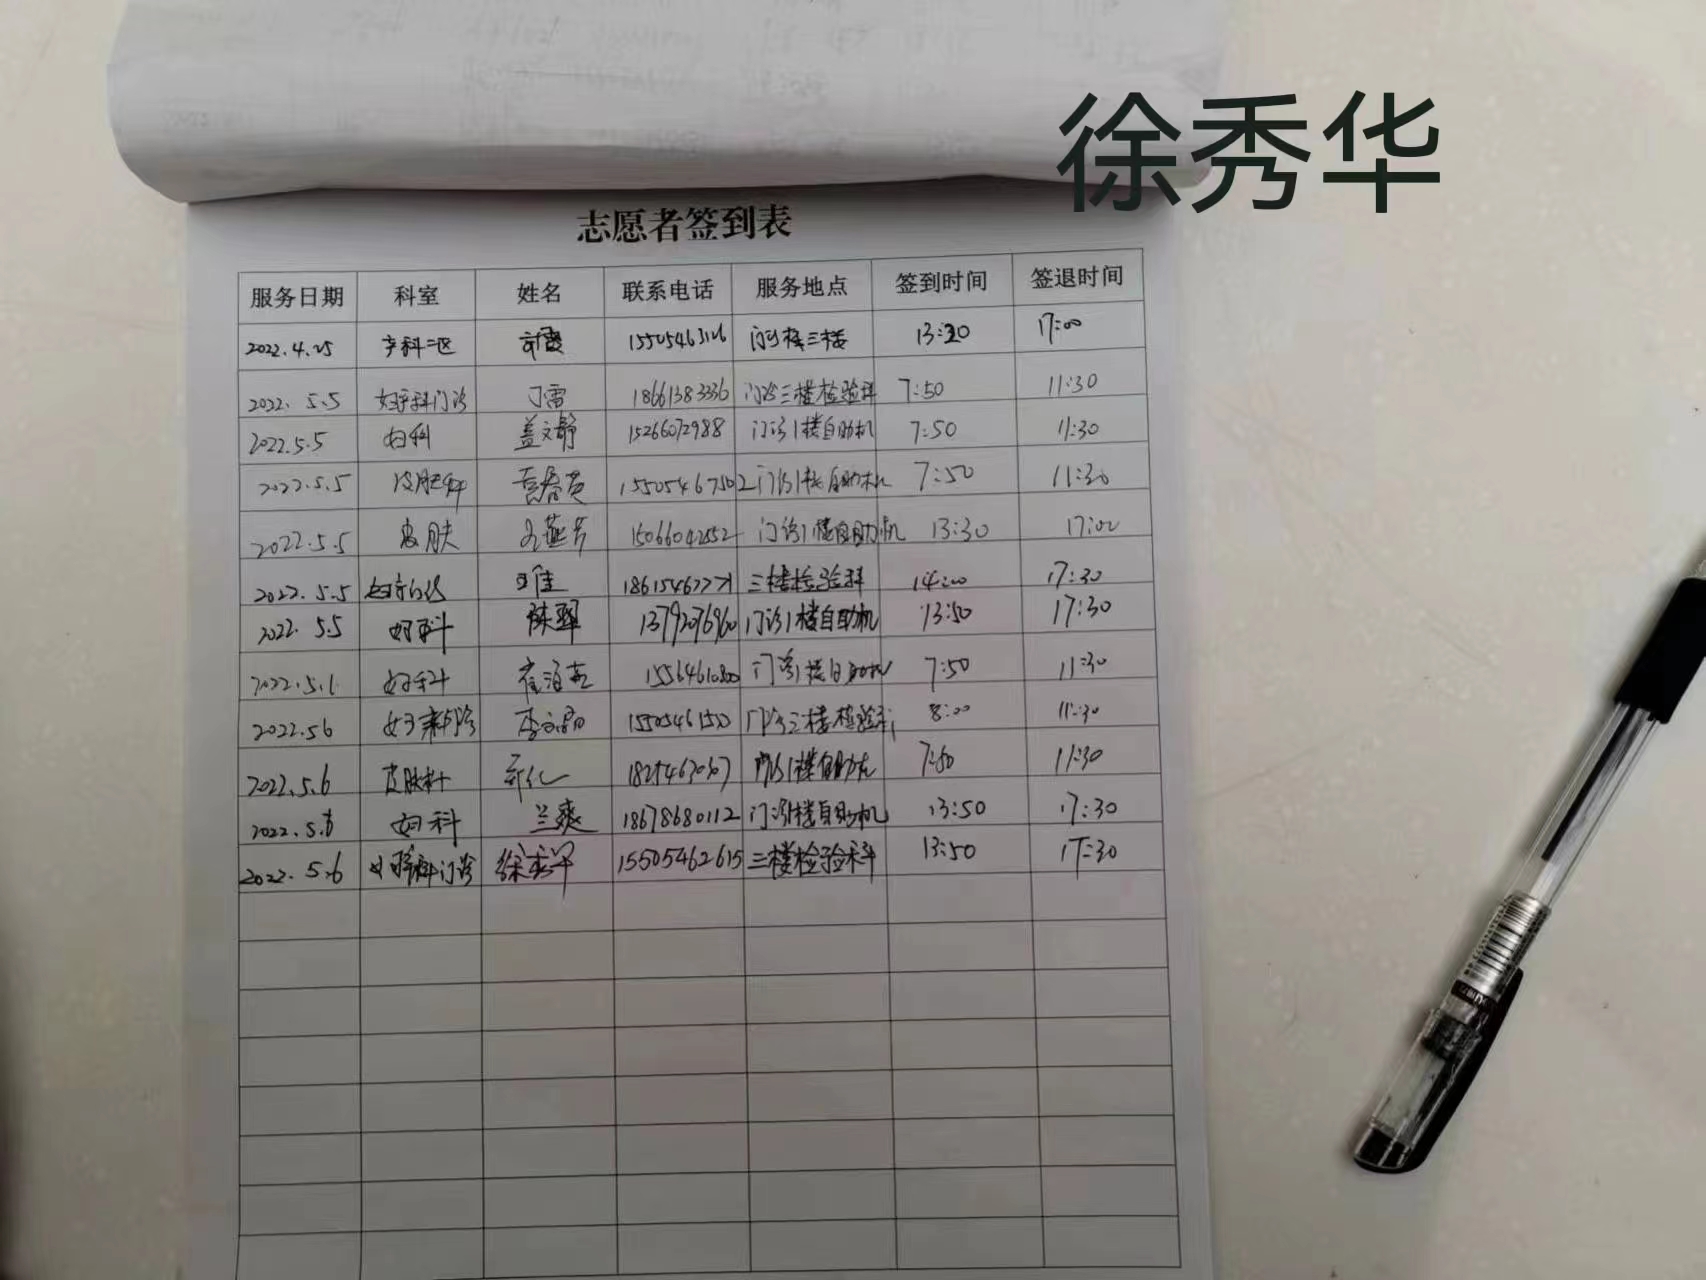 徐秀华
志愿者签到表
服务日期 科室 姓名 联系电话 服务地点 签到时间 签退时间
2022.4.25 产科二区 15505463126 门诊楼三楼 13:20 17:00
2022.5.5 妇产科门诊 丁雷 18661383336 门诊三楼检验科 7:50 11:30
2022.5.5 妇科 盖文静 15266072988 门诊1楼自助机 7:50 11:30
2022.5.5 皮肤科 15505467502 门诊1楼自助机 7:50 11:30
2022.5.5 皮肤 孔燕芳 15066042552 门诊1楼自助机 13:30 17:00
2022.5.5 王佳 18615467771 三楼检验科 14:00 17:30
2022.5.5 妇科 陈翠 13792076960 门诊1楼自助机 13:50 17:30
2022.5.6 妇科 崔海燕 15564610800 门诊1楼自助机 7:50 11:30
2022.5.6 门诊三楼检验科 8:00 11:30
2022.5.6 皮肤科 门诊1楼自助机 7:50 11:30
2022.5.6 妇科 兰爽 18678680112 门诊1楼自助机 13:50 17:30
2022.5.6 妇产科门诊 徐秀华 15505462615 三楼检验科 13:50 17:30